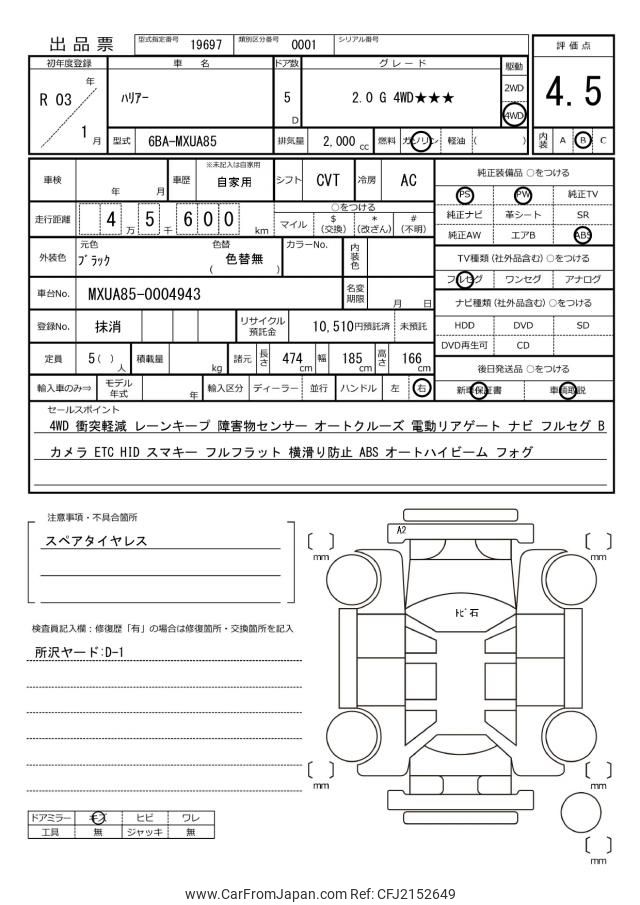 出品票 型式指定番号 19697 類別区分番号 0001 シリアル番号
評価点
4.5
初年度登録 車名 ドア数 グレード 駆動
R 03 年 1 月 ハリアー 5 D 2.0 G 4WD★★★ 2WD 4WD
型式 6BA-MXUA85 排気量 2,000 cc 燃料 ガソリン 軽油 ( ) 内装 A B C
車検 年 月 車歴 ※未記入は自家用 自家用 シフト CVT 冷房 AC
走行距離 4 万 5 千 6 0 0 km ○をつける マイル $(交換) *(改ざん) #(不明)
外装色 元色 ブラック 色替 ( 色替無 ) カラーNo. 内装色
車台No. MXUA85-0004943 名変期限 月 日
登録No. 抹消 リサイクル預託金 10,510円預託済 未預託
定員 5( )人 積載量 kg 諸元 長さ 474 cm 幅 185 cm 高さ 166 cm
輸入車のみ⇒ モデル年式 年 輸入区分 ディーラー 並行 ハンドル 左 右
純正装備品 ○をつける
PS PW 純正TV
純正ナビ 革シート SR
純正AW エアB ABS
TV種類(社外品含む)○をつける
フルセグ ワンセグ アナログ
ナビ種類(社外品含む)○をつける
HDD DVD SD
DVD再生可 CD
後日発送品 ○をつける
新車保証書 車輌取説
セールスポイント
4WD 衝突軽減 レーンキープ 障害物センサー オートクルーズ 電動リアゲート ナビ フルセグ B
カメラ ETC HID スマキー フルフラット 横滑り防止 ABS オートハイビーム フォグ
注意事項・不具合箇所
スペアタイヤレス
検査員記入欄:修復歴「有」の場合は修復箇所・交換箇所を記入
所沢ヤード:D-1
A2
トビ石
mm
mm
mm
mm
mm
ドアミラー キズ ヒビ ワレ
工具 無 ジャッキ 無
www.CarFromJapan.com Ref: CFJ2152649